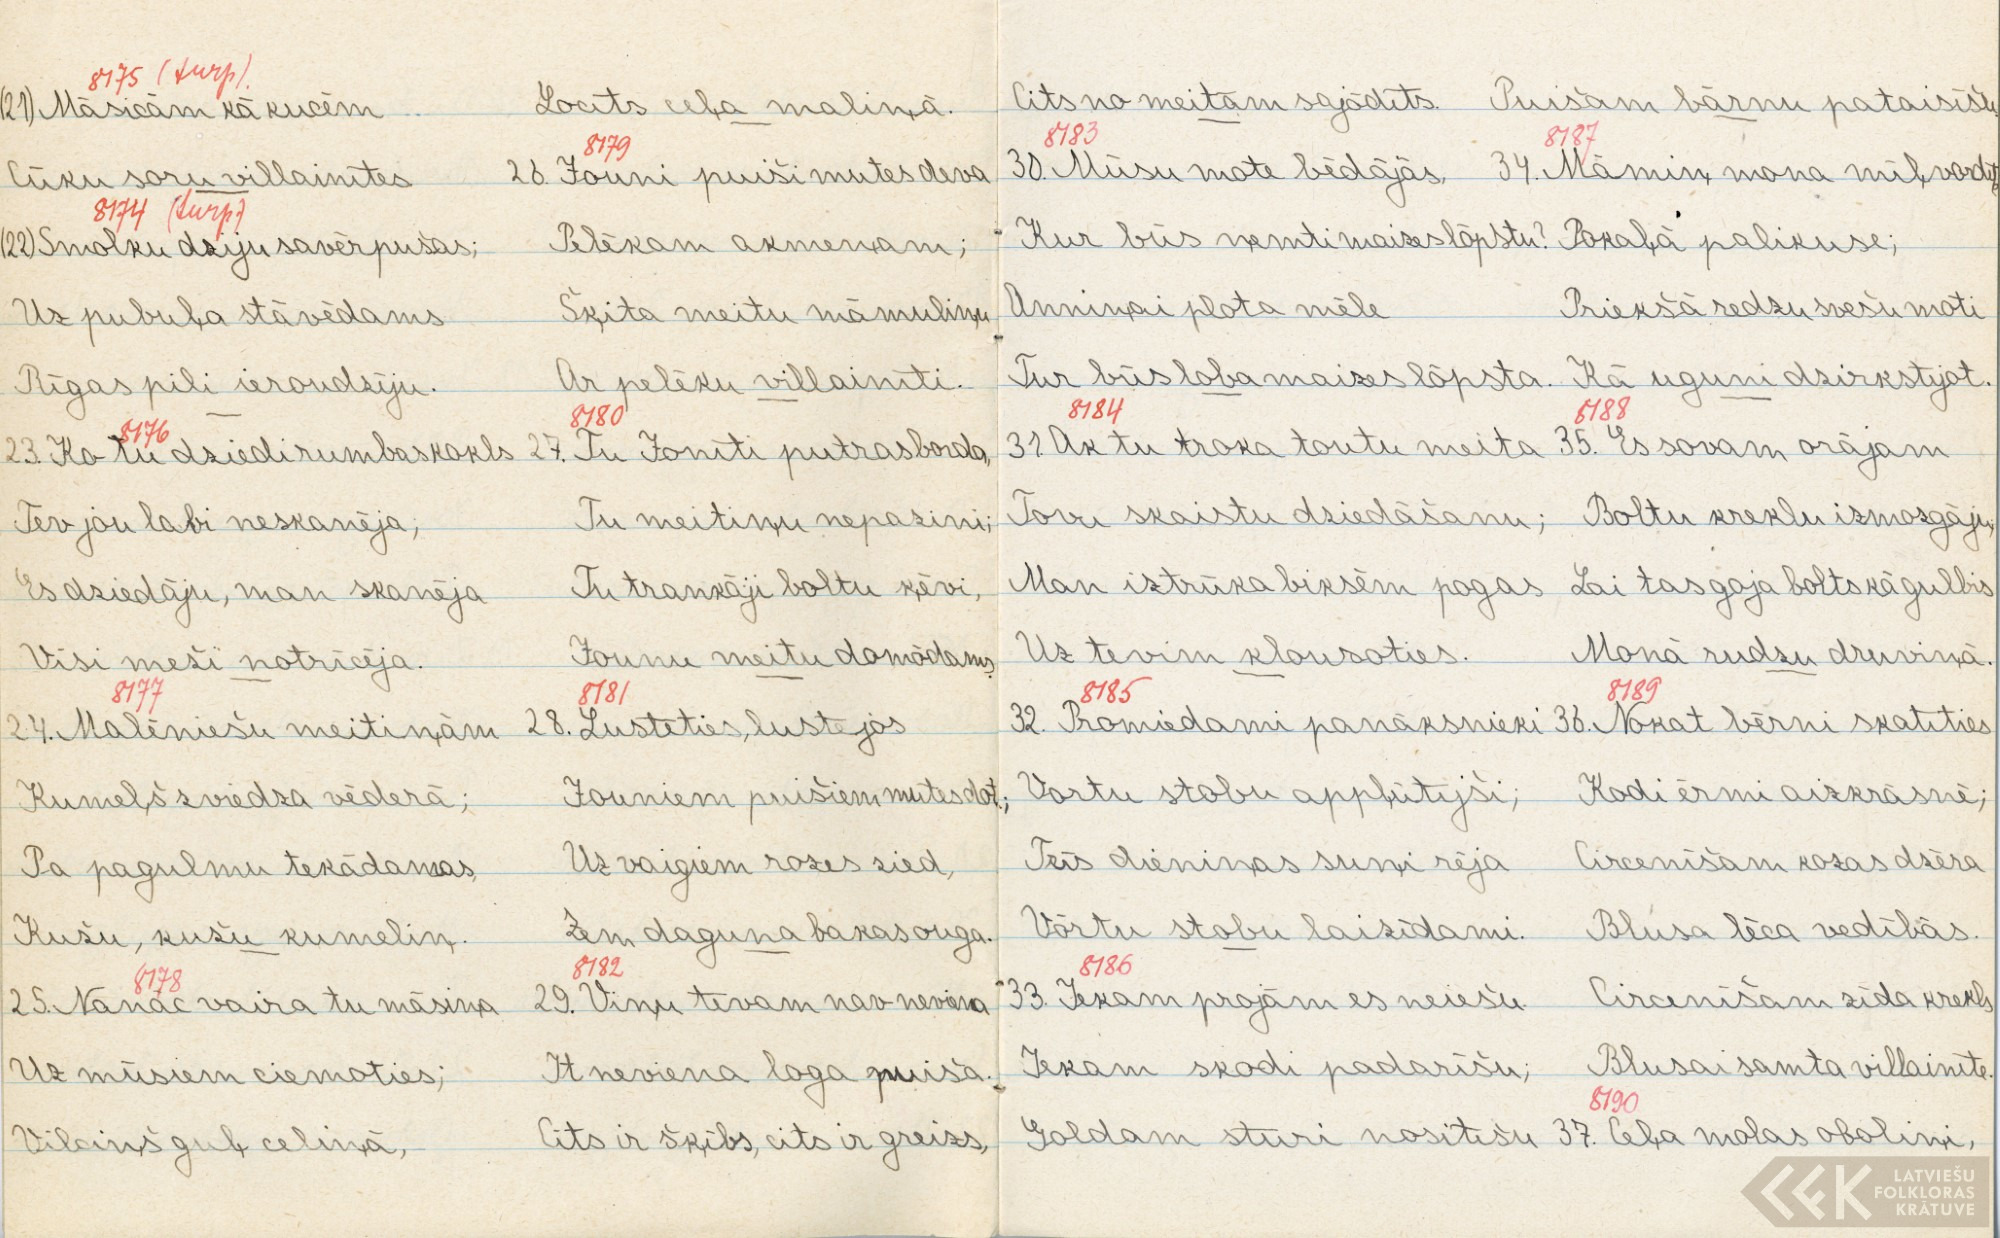 8175 (turp).
(21) Māsicām kā kucēm
Cūku soru villainītes
8174 (turp)
(22) Smolku dziju savērpušas;
Uz pubuļa stāvēdams
Rīgas pili ieroudzīju.
8176
23. Ko tu dziedi rumbaskakls
Tev jou labi neskanēja;
Es dziedāju, man skanēja
Visi meži notricēja.
8177
24. Malēniešu meitiņām
Kumeļš zviedza vēderā;
Pa pagulmu tekādamas,
Kušu, kušu kumeliņ.
8178
25. Nanāc vaira tu māsiņa
Uz mūsiem ciemoties;
Vilciņš guļ celiņā,
Locīts ceļa maliņā.
8179
26. Jouni puiši mutes deva
Pelēkam akmeņam;
Šķita meitu māmuliņu
Ar pelēku villainīti.
8180
27. Tu Jonīti putrasborda,
Tu meitiņu nepazini;
Tu trankāji boltu ķēvi,
Jounu meitu domōdams,
8181
28. Lusteties, lustejos
Jouniem puišiem mutes dot;
Uz vaigiem rozes zied,
Zem daguna bakas ouga.
8182
29. Viņu tevam nav neviena
It neviena loga puiša.
Cits ir šķībs, cits ir greizs,
Cits no meitām sajōdīts.
8183
30. Mūsu mote bēdājās,
Kur būs ņemti maizes lōpstu?
Anniņai plota mēle
Tur būs loba maizes lōpsta.
8184
31. Ak tu troka toutu meita
Tovu skaistu dziedāšanu;
Man iztrūka biksēm pogas
Uz tevim klousoties.
8185
32. Promiedami panāksnieki
Vortu stobu appļūtījši;
Trīs dieniņas suņi rēja
Vōrtu stobu laizīdami.
8186
33. Jekam projām es neiešu
Jekam skodi padarīšu;
Goldam sturi nosītīšu
Puišam bārnu pataisīšu.
8187
34. Māmiņ mona mīļvordīte
Pokaļā palikuse;
Priekšā redzu svešu moti
Kā uguni dzirkstījot.
8188
35. Es sovam orājam
Boltu kreklu izmozgāju,
Lai tas goja bolts kā gulbis
Monā rudzu druviņā.
8189
36. Nokat bērni skatīties
Kodi ērmi aizkrāsnē;
Circenīšam kozas dzēra
Blusa lēca vedībās.
Circenīšam zīda krekls
Blusai samta villainīte.
8190
37. Ceļa molas oboliņi,
LATVIEŠU
FOLKLORAS
KRĀTUVE